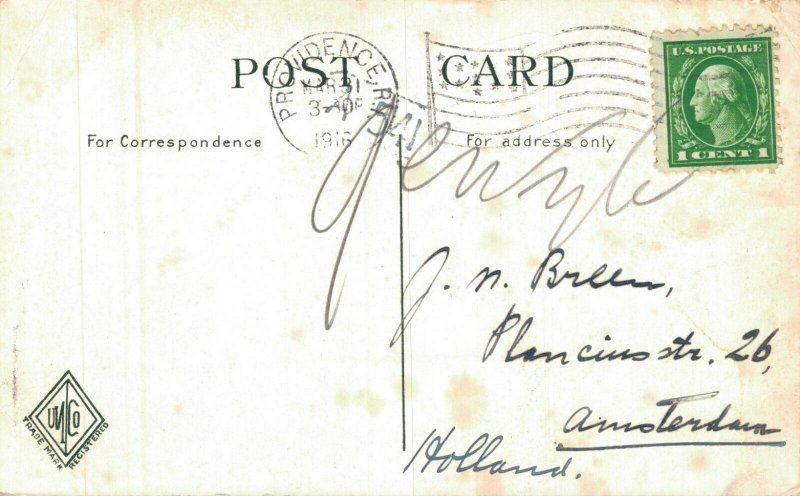 POST CARD
PROVIDENCE, R.I.
MAR 31
3-30P
1916
U.S. POSTAGE
1 CENT 1
For Correspondence
For address only
J. N. Breen,
Planciusstr. 26,
Amsterdam
Holland.
UNCo
TRADE MARK REGISTERED